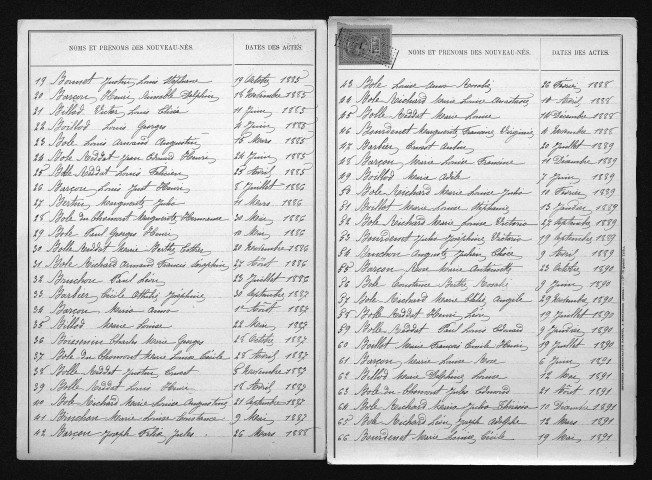 NOMS ET PRÉNOMS DES NOUVEAU-NÉS. DATES DES ACTES.
19 Bonnet Justin Louis Stéphane 19 Octobre 1885
20 Barçon Henri Delphin 18 Novembre 1885
21 Billod Victor Louis 11 Juin 1885
22 Boillot Louis Georges 4 Juin 1885
23 Bole Louis Armand Augustin 15 Mars 1885
24 Bole Riddat Jean Henri 24 Juin 1885
25 Bole Riddat Louis 25 Avril 1885
26 Barçon Louis Just Henri 8 Juillet 1886
27 Bertin Marguerite Julie 11 Mars 1886
28 Bole du Chomont Marguerite 30 Mai 1886
29 Bole Paul Georges Henri 10 Mai 1886
30 Bolle Riddat Marie Berthe 20 Novembre 1886
31 Bole Richard Armand Francis Joseph 27 Août 1886
32 Paul Léon 23 Juillet 1886
33 Barbier Cécile Joséphine 30 Septembre 1887
34 Barçon Maria Anna 1er Août 1887
35 Billod Marie Louise 22 Mai 1887
36 Boissenin Charles Marie Georges 28 Octobre 1887
37 Bole du Chomont Marie Louise Cécile 28 Avril 1887
38 Bolle Riddat Justin Ernest 5 Novembre 1887
39 Bolle Riddat Louis Henri 18 Avril 1887
40 Bole Richard Marie Louise Augustine 21 Septembre 1887
41 Marie Louise Constance 9 Mai 1887
42 Barçon Joseph Félix Jules 26 Mars 1888
NOMS ET PRÉNOMS DES NOUVEAU-NÉS. DATES DES ACTES.
43 Bole Louise Anna 26 Février 1888
44 Bole Richard Maria Louise 11 Avril 1888
45 Bolle Riddat Marie Louise 16 Décembre 1888
46 Bourdenet Marguerite Francine Virginie 4 Novembre 1888
47 Barbier Ernest 20 Juillet 1889
48 Barçon Marie Louise Francine 11 Décembre 1889
49 Boillod Marie Adèle 7 Juin 1889
50 Bole Richard Marie Louise Julie 10 Février 1889
51 Boillot Marie Louise Stéphanie 13 Janvier 1889
52 Bole Richard Marie Louise Victorine 27 Septembre 1889
53 Bourdenet Julie Joséphine Victorine 19 Septembre 1889
54 Auguste Julien 9 Avril 1889
55 Barçon Rose Marie Antoinette 23 Octobre 1890
56 Bole Constance Berthe 9 Juin 1890
57 Bole Richard Marie Angèle 29 Novembre 1890
58 Bolle Riddat Henri Léon 19 Juillet 1890
59 Bolle Riddat Paul Louis Edouard 9 Janvier 1890
60 Boillot Marie François Camille Henri 19 Juillet 1890
61 Barçon Marie Louise Rose 6 Juin 1891
62 Billod Marie Delphine Louise 12 Mai 1891
63 Bole du Chomont Jules Edouard 21 Août 1891
64 Bole Richard Maria Julie 10 Décembre 1891
65 Bole Richard Léon Joseph Adolphe 12 Mars 1891
66 Bourdenet Marie Louise Cécile 19 Mai 1891